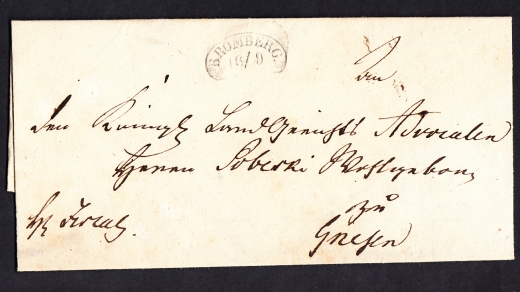 BROMBERG.
16/9
An
den Königl Land Gerichts Advocaten
Herrn Sobeski Wohlgeborn
zu
Gnesen